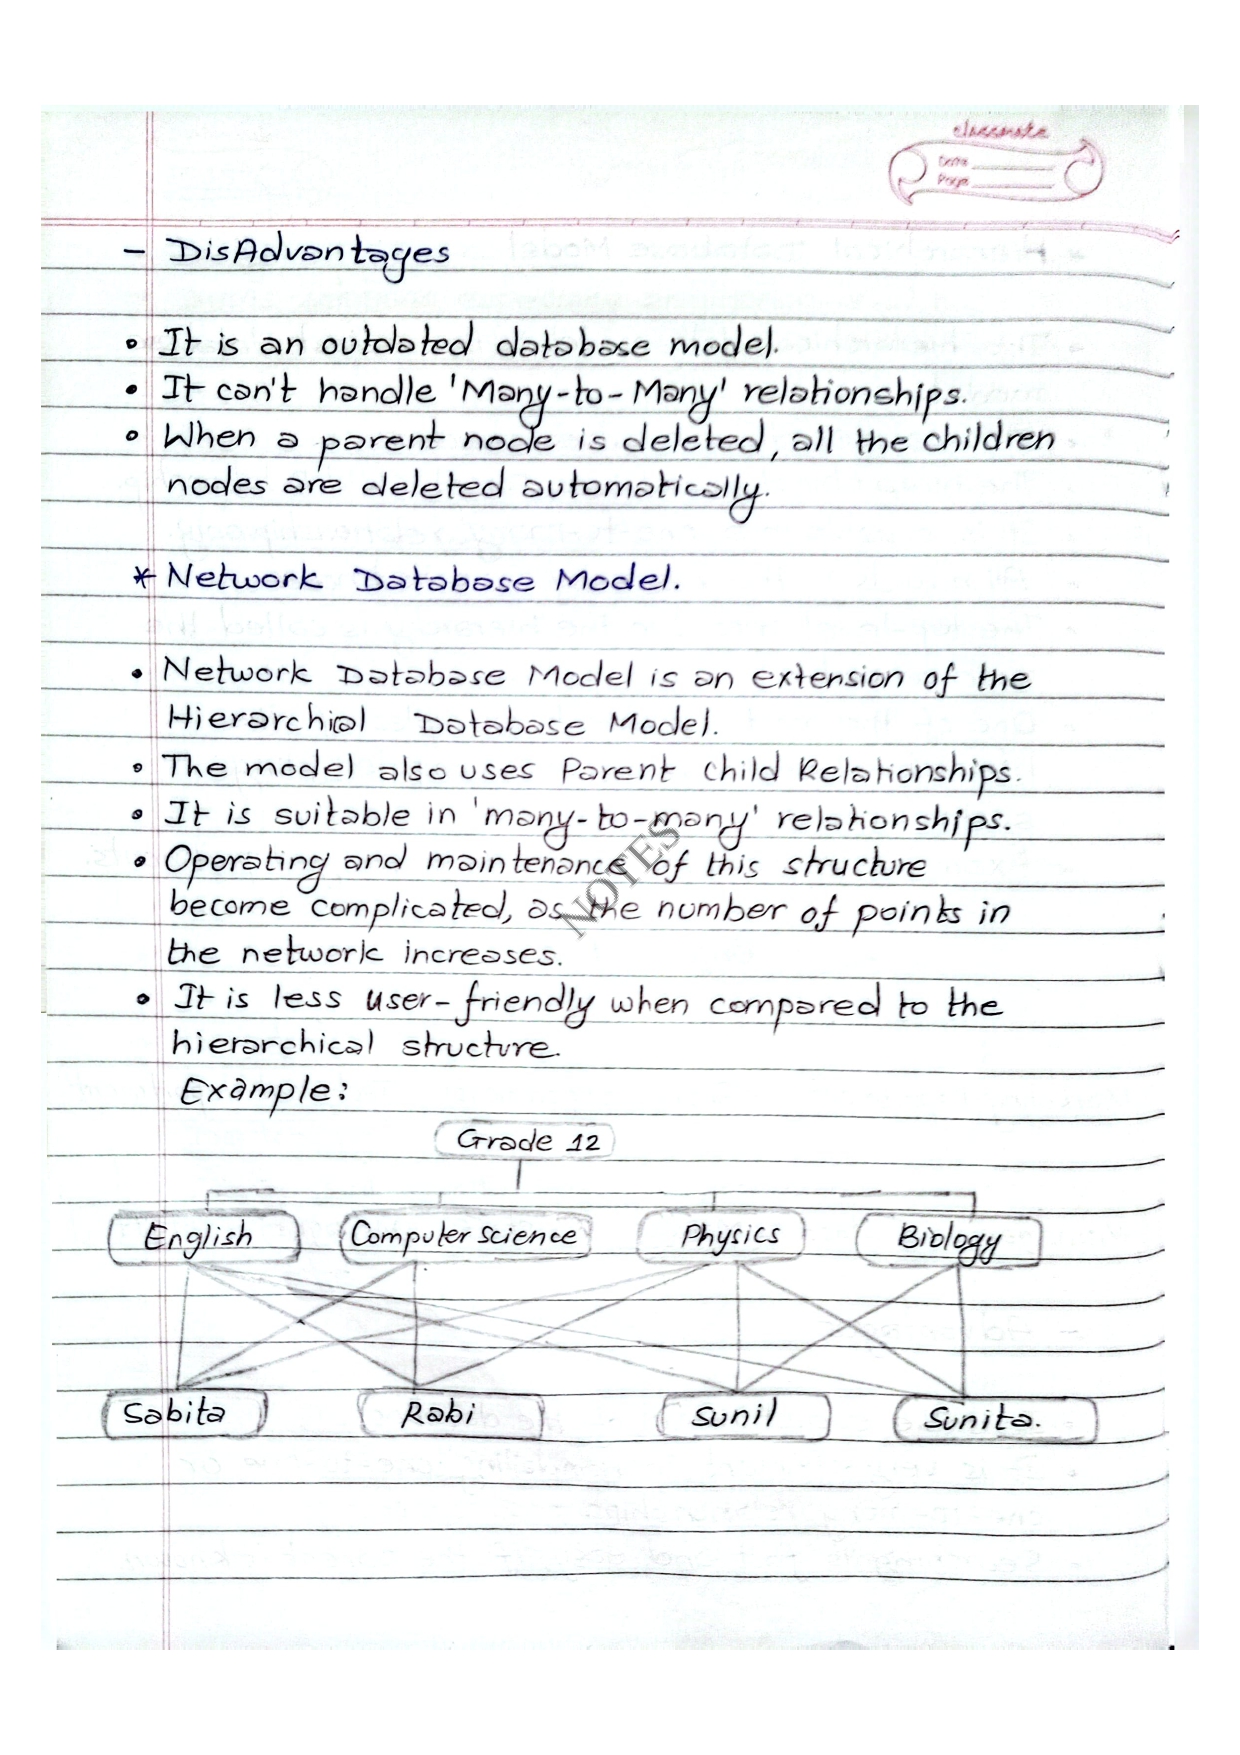 classmate
Date
Page
- DisAdvantages
• It is an outdated database model.
• It can't handle 'Many-to-Many' relationships.
• When a parent node is deleted, all the children
nodes are deleted automatically.
* Network Database Model.
• Network Database Model is an extension of the
Hierarchial Database Model.
• The model also uses Parent Child Relationships.
• It is suitable in 'many-to-many' relationships.
• Operating and maintenance of this structure
become complicated, as the number of points in
the network increases.
NOTES
• It is less user-friendly when compared to the
hierarchical structure.
Example:
Grade 12
English Computer science Physics Biology
Sabita Rabi Sunil Sunita.